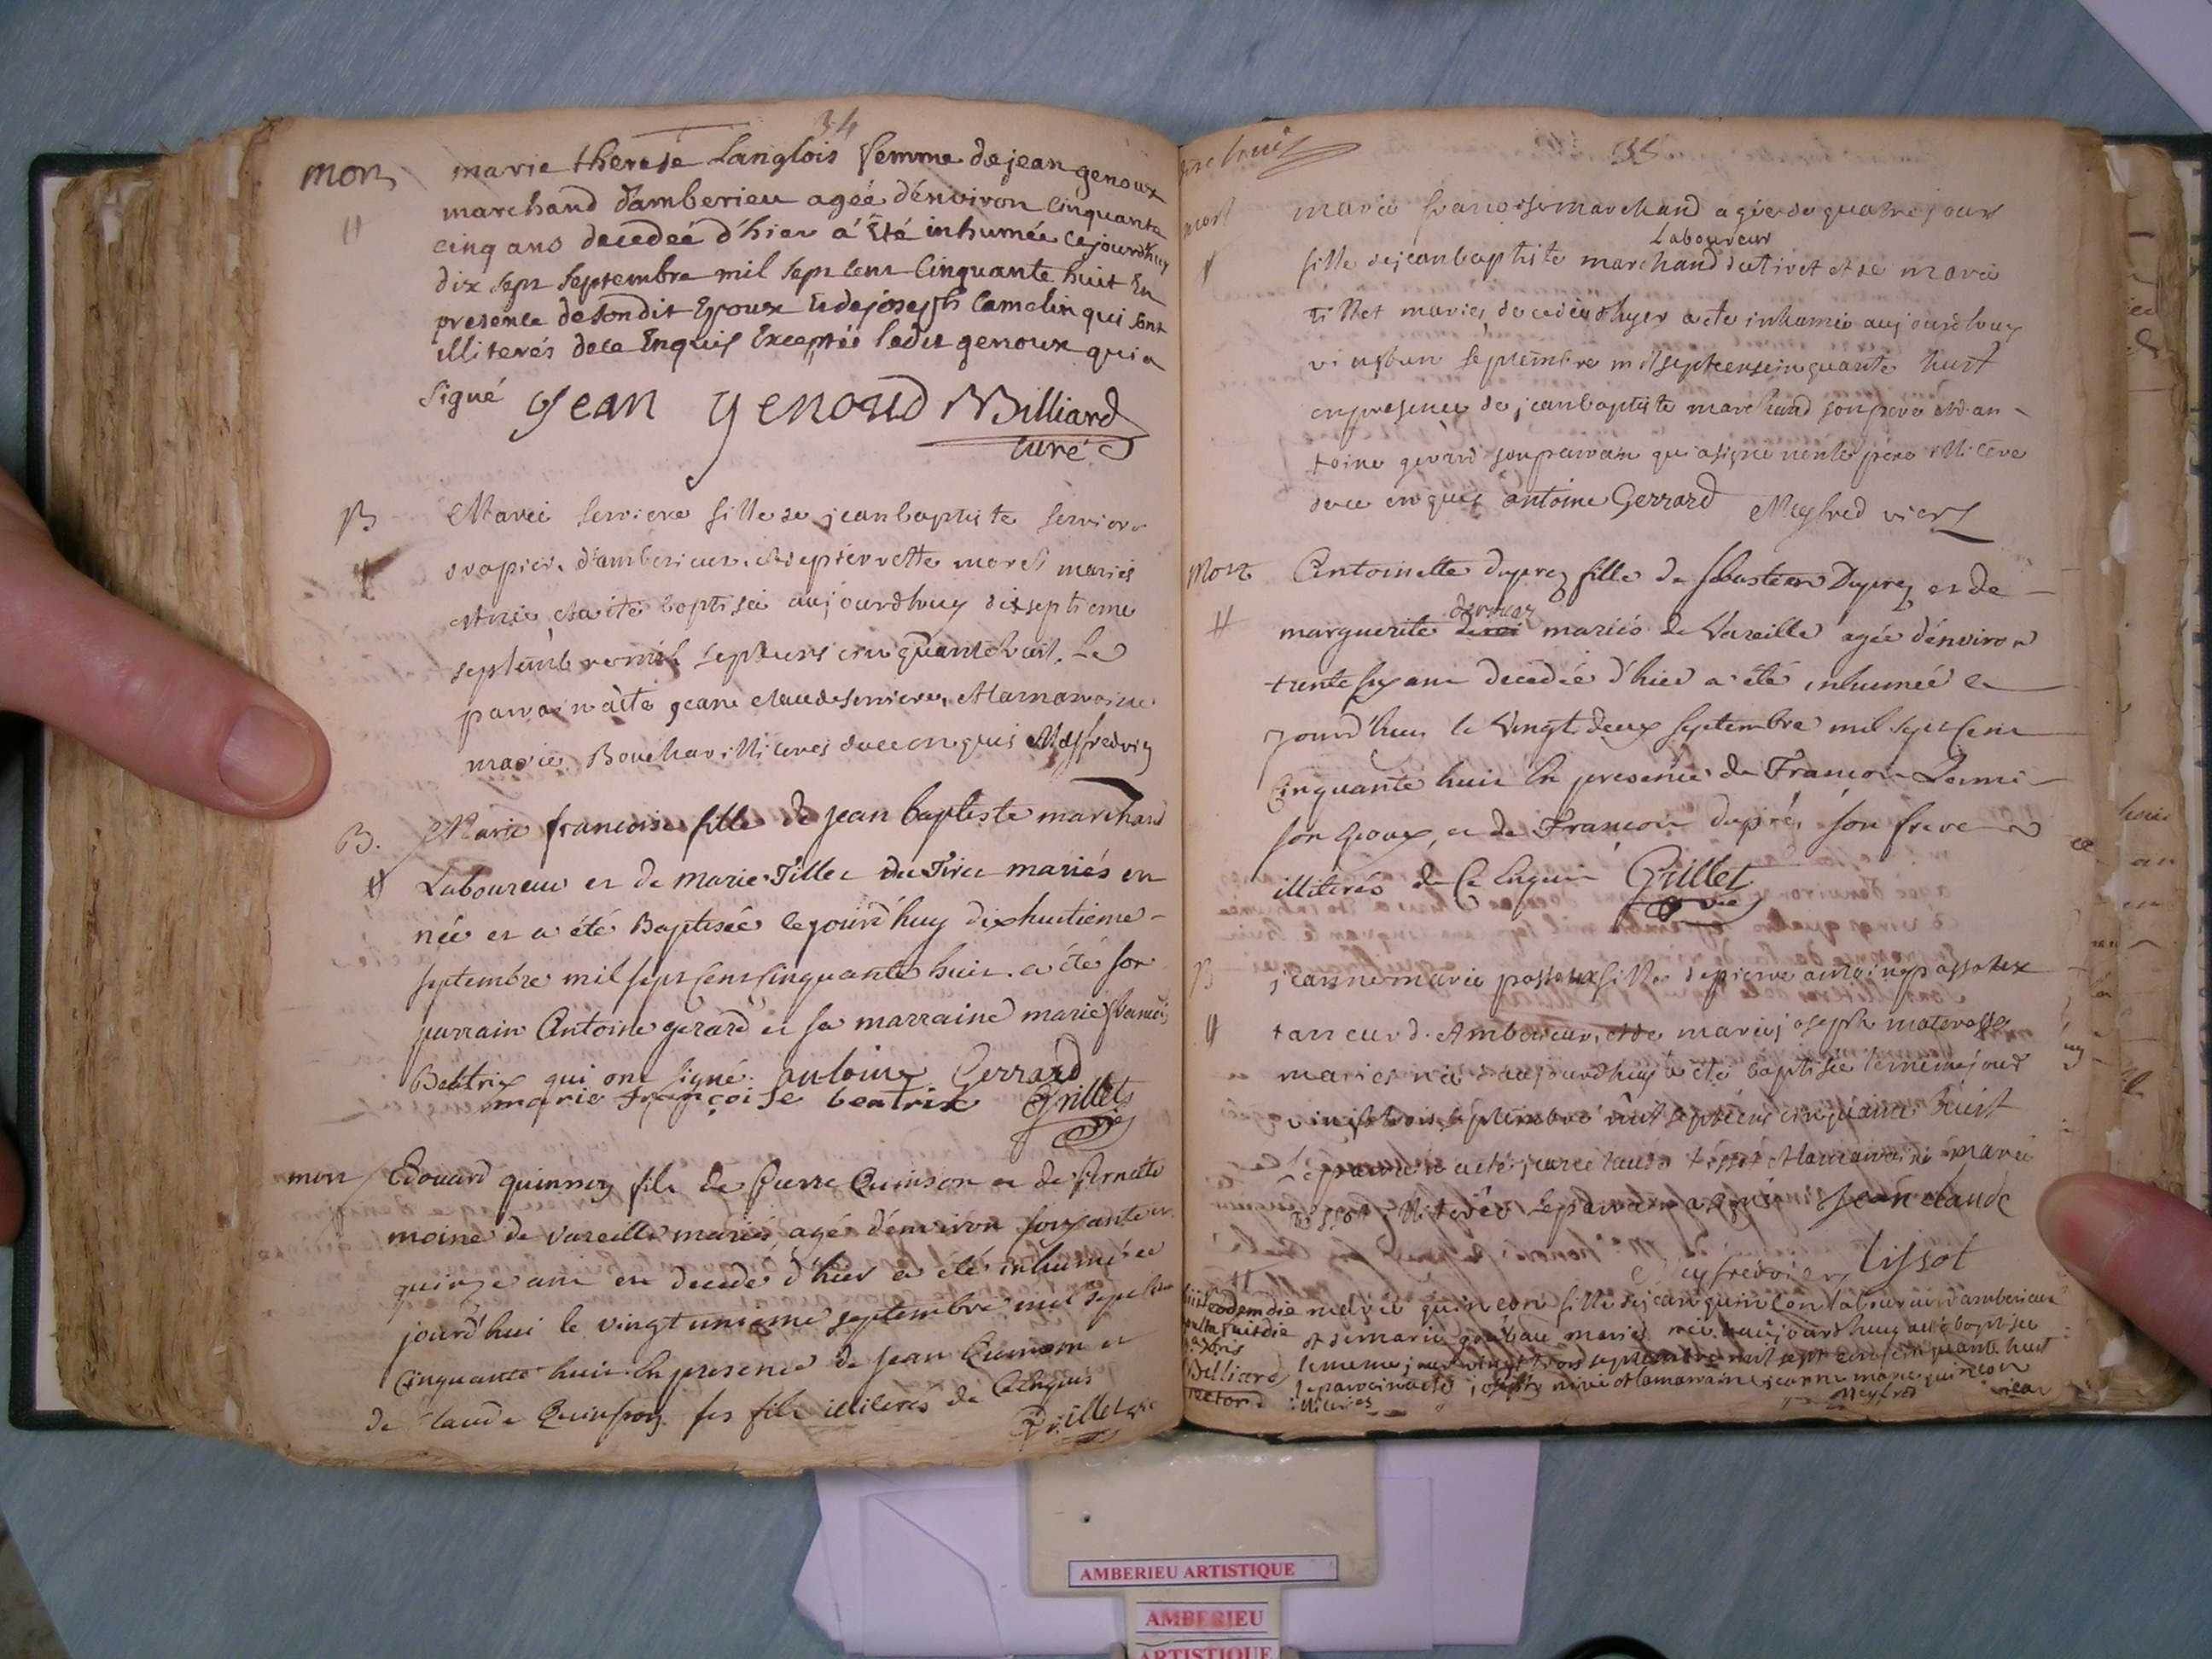 34
mort marie therese Langlois femme de jean genoux
marchand d'amberieu agée d'énviron cinquante
cinq ans decedeé d'hier a été inhumée cejourdhuy
dix sept septembre mil sept cent Cinquante huit En
presence de son dit Epoux Et de joseph Camelin qui sont
illiterés de ce Enquis Exceptée ledit genoux qui a
signé jean genoud Billiard
curé
B Marie serviere fille de jean baptiste serviere
drapier d'amberieu et de pierrette moret mariés
est née et a été baptiseé aujourdhuy dixseptieme
septembre mil sept cens cinquante huit. Le
parain a été jean claude serviere, et la maraine
marie illiteres de ce enquis Meyfred vic
B. Marie francoise fille de jean baptiste marchand
Laboureur et de marie Tillet du Tiret mariés en
née et a été Baptisée cejourd'huy dixhuitieme
septembre mil sept cent cinquante huit. a été son
parrain Antoine gerard et sa marraine marie francoise
Beatrix qui ont signé. antoine Gerrard
marie françoise beatrix Grillet
vic
mort Edouard quinson fils de Pierre Quinson et de Pernette
moine de Vareille mariés agé d'énviron soixante et
quinze ans est decedé d'hier a été inhumé ce
jourd'hui le vingt unieme septembre mil sept cent
Cinquante huit En presence de Jean Quinson et
de Claude Quinson ses fils illiterés de ce enquis
Grillet vic
35
mort marie francoise marchand agée de quatre jours
Laboureur
fille de jean baptiste marchand du tiret et de marie
tillet mariés, decedée d'hyer a été inhumée aujourdhuy
vingt un septembre mil sept cens cinquante huit
en presence de jean baptiste marchand son pere et d'an-
toine gerard son parain qui a signé non le père illitere
de ce enquis antoine Gerrard Meyfred vic
Mort Antoinette Duprez fille de Sebastien Duprez et de
marguerite mariés de Vareille agée d'énviron
trente six ans decedée d'hier a été inhumée ce
jourd'huy le Vingt deux septembre mil sept cent
Cinquante huit En presence de François
son epoux, et de François dupré, son frere
illiterés de Ce Enquis Grillet
vic
B jeanne marie passerat fille de pierre antoine passerat
tanneur d'Amberieu, et de marie joseph
mariés née d'aujourdhuy a été baptisée le meme jour
vingt trois septembre mil sept cens cinquante huit
Le parain a été jean claude tissot et la maraine marie
tissot illiterée le parain a signé Jean claude
Meyfred vic tissot
eodem die marie quincon fille de jean quincon laboureur d'amberieux
et de marie mariés née d'aujourdhuy a été baptisée
le meme jour vingt trois septembre mil sept cens cinquante huit
le parain a été joseph et la maraine jeanne marie quincon
illiterés Meyfred vicar
Billiard
rector
AMBERIEU ARTISTIQUE
AMBERIEU
ARTISTIQUE